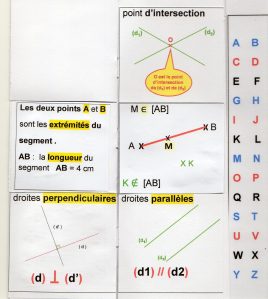 point d'intersection
(d₁)
(d₂)
O
O est le point
d'intersection
de (d₁) et de (d₂)
Les deux points A et B
sont les extrémités du
segment .
AB : la longueur du
segment AB = 4 cm
M ∈ [AB]
A x
x M
x B
x K
K ∉ [AB]
droites perpendiculaires
(d')
(d)
(d) ⊥ (d')
droites parallèles
(d₁)
(d₂)
(d1) // (d2)
A B
C D
E F
G H
I J
K L
M N
O P
Q R
S T
U V
W X
Y Z